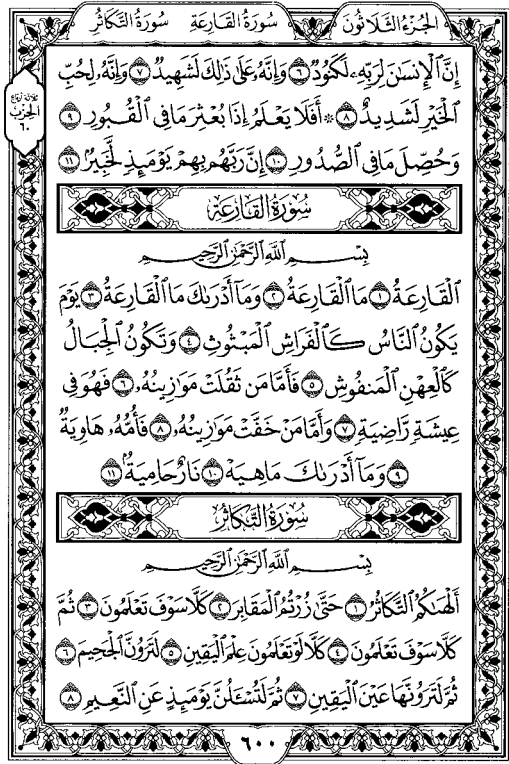 الجُزْءُ الثَّلَاثُونَ سُورَةُ القَارِعَةِ سُورَةُ التَّكَاثُرِ
إِنَّ ٱلْإِنسَٰنَ لِرَبِّهِۦ لَكَنُودٌ ٦ وَإِنَّهُۥ عَلَىٰ ذَٰلِكَ لَشَهِيدٌ ٧ وَإِنَّهُۥ لِحُبِّ
ٱلْخَيْرِ لَشَدِيدٌ ٨ ۞ أَفَلَا يَعْلَمُ إِذَا بُعْثِرَ مَا فِي ٱلْقُبُورِ ٩
ثلاثة أرباع
الحزب
٦٠
وَحُصِّلَ مَا فِي ٱلصُّدُورِ ١٠ إِنَّ رَبَّهُم بِهِمْ يَوْمَئِذٍ لَّخَبِيرٌۢ ١١
سُورَةُ القَارِعَةِ
بِسْمِ ٱللَّهِ ٱلرَّحْمَٰنِ ٱلرَّحِيمِ
ٱلْقَارِعَةُ ١ مَا ٱلْقَارِعَةُ ٢ وَمَآ أَدْرَىٰكَ مَا ٱلْقَارِعَةُ ٣ يَوْمَ
يَكُونُ ٱلنَّاسُ كَٱلْفَرَاشِ ٱلْمَبْثُوثِ ٤ وَتَكُونُ ٱلْجِبَالُ
كَٱلْعِهْنِ ٱلْمَنفُوشِ ٥ فَأَمَّا مَن ثَقُلَتْ مَوَٰزِينُهُۥ ٦ فَهُوَ فِي
عِيشَةٍ رَّاضِيَةٍ ٧ وَأَمَّا مَنْ خَفَّتْ مَوَٰزِينُهُۥ ٨ فَأُمُّهُۥ هَاوِيَةٌ
٩ وَمَآ أَدْرَىٰكَ مَا هِيَهْ ١٠ نَارٌ حَامِيَةٌۢ ١١
سُورَةُ التَّكَاثُرِ
بِسْمِ ٱللَّهِ ٱلرَّحْمَٰنِ ٱلرَّحِيمِ
أَلْهَىٰكُمُ ٱلتَّكَاثُرُ ١ حَتَّىٰ زُرْتُمُ ٱلْمَقَابِرَ ٢ كَلَّا سَوْفَ تَعْلَمُونَ ٣ ثُمَّ
كَلَّا سَوْفَ تَعْلَمُونَ ٤ كَلَّا لَوْ تَعْلَمُونَ عِلْمَ ٱلْيَقِينِ ٥ لَتَرَوُنَّ ٱلْجَحِيمَ ٦
ثُمَّ لَتَرَوُنَّهَا عَيْنَ ٱلْيَقِينِ ٧ ثُمَّ لَتُسْـَٔلُنَّ يَوْمَئِذٍ عَنِ ٱلنَّعِيمِ ٨
٦٠٠